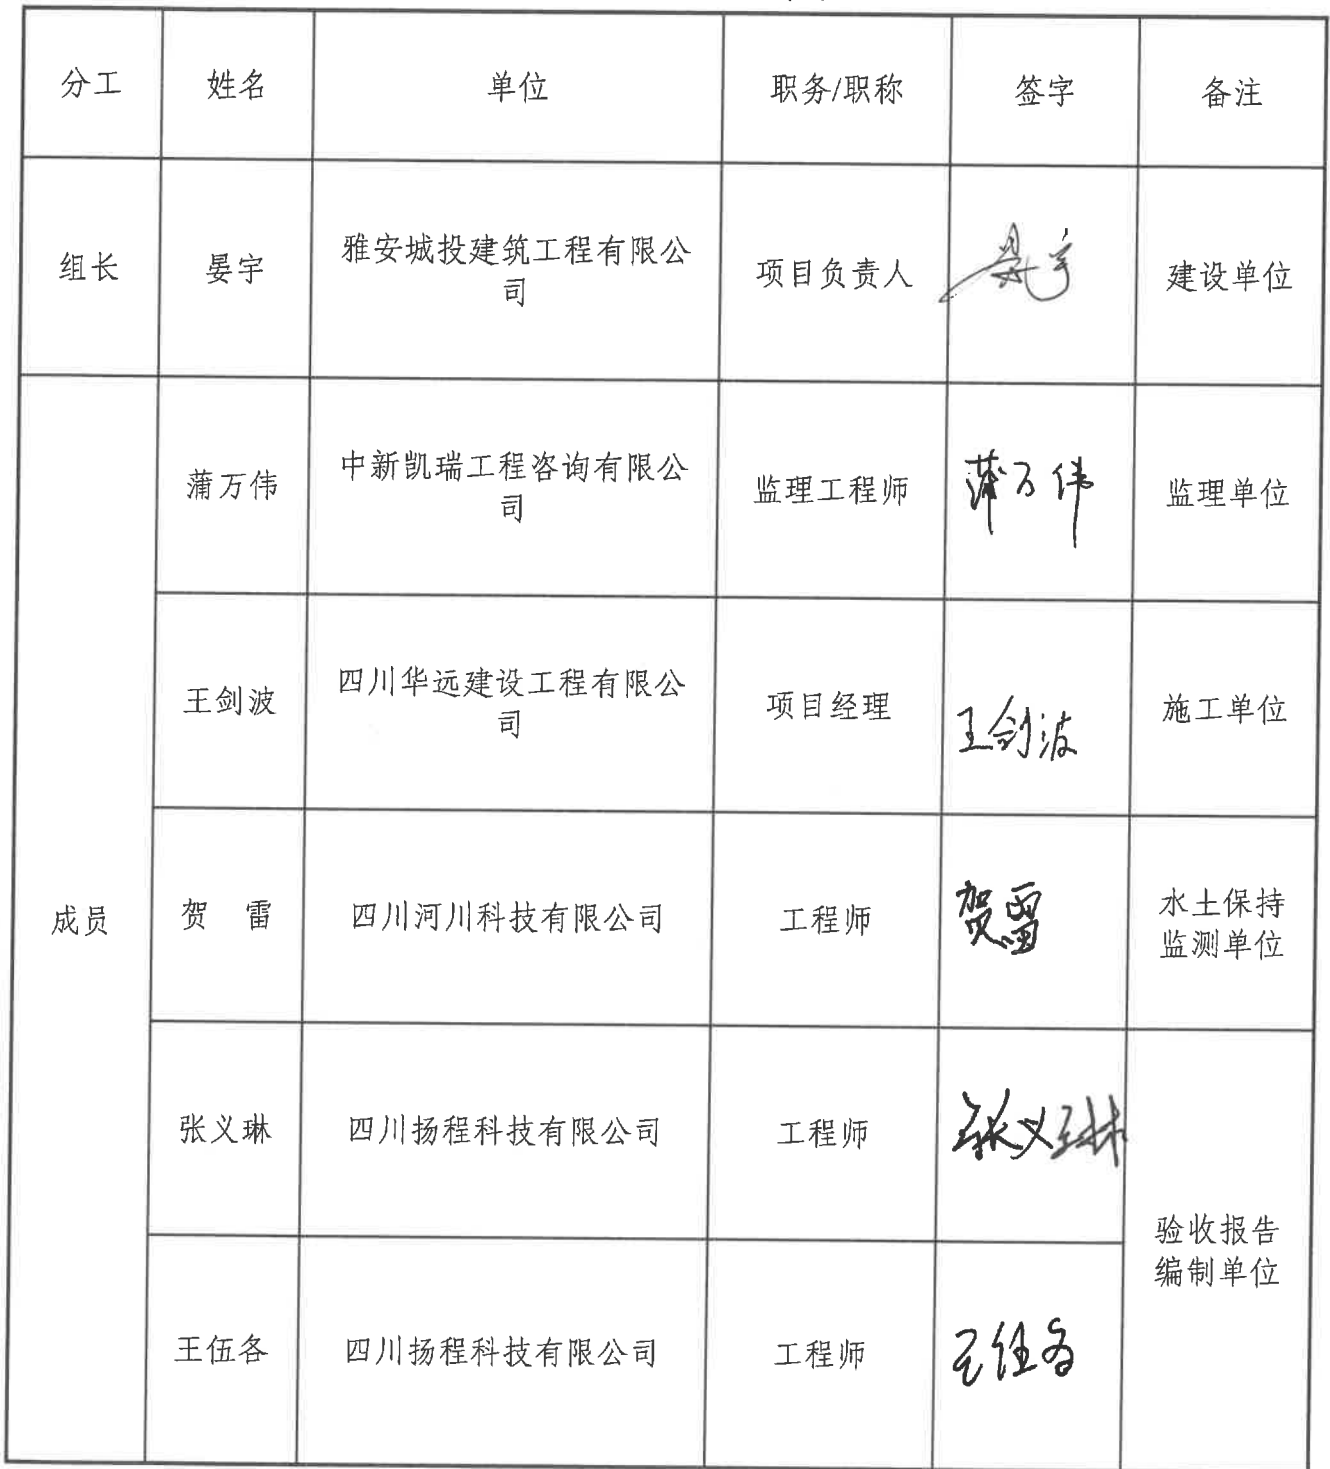 分工 姓名 单位 职务/职称 签字 备注
组长 晏宇 雅安城投建筑工程有限公 项目负责人 晏宇 建设单位
司
蒲万伟 中新凯瑞工程咨询有限公 监理工程师 蒲万伟 监理单位
司
王剑波 四川华远建设工程有限公 项目经理 王剑波 施工单位
司
成员 贺 雷 四川河川科技有限公司 工程师 贺雷 水土保持
监测单位
张义琳 四川扬程科技有限公司 工程师 张义琳
验收报告
编制单位
王伍各 四川扬程科技有限公司 工程师 王伍各